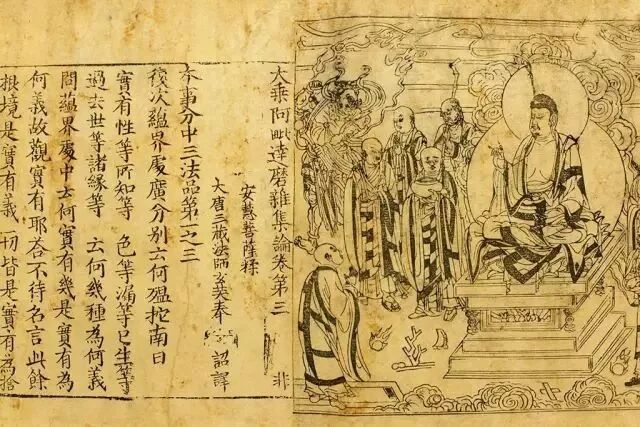 大乘阿毗達磨雜集論卷第三 非
安慧菩薩糅
大唐三藏法師玄奘奉 詔譯
本事分中三法品第一之三
復次蘊界處廣分別云何殟拕南曰
實有性等所知等 色等漏等已生等
過去世等諸緣等 云何幾種為何義
問蘊界處中云何實有幾是實有為
何義故觀實有耶答不待名言此餘
根境是實有義一切皆是實有為捨